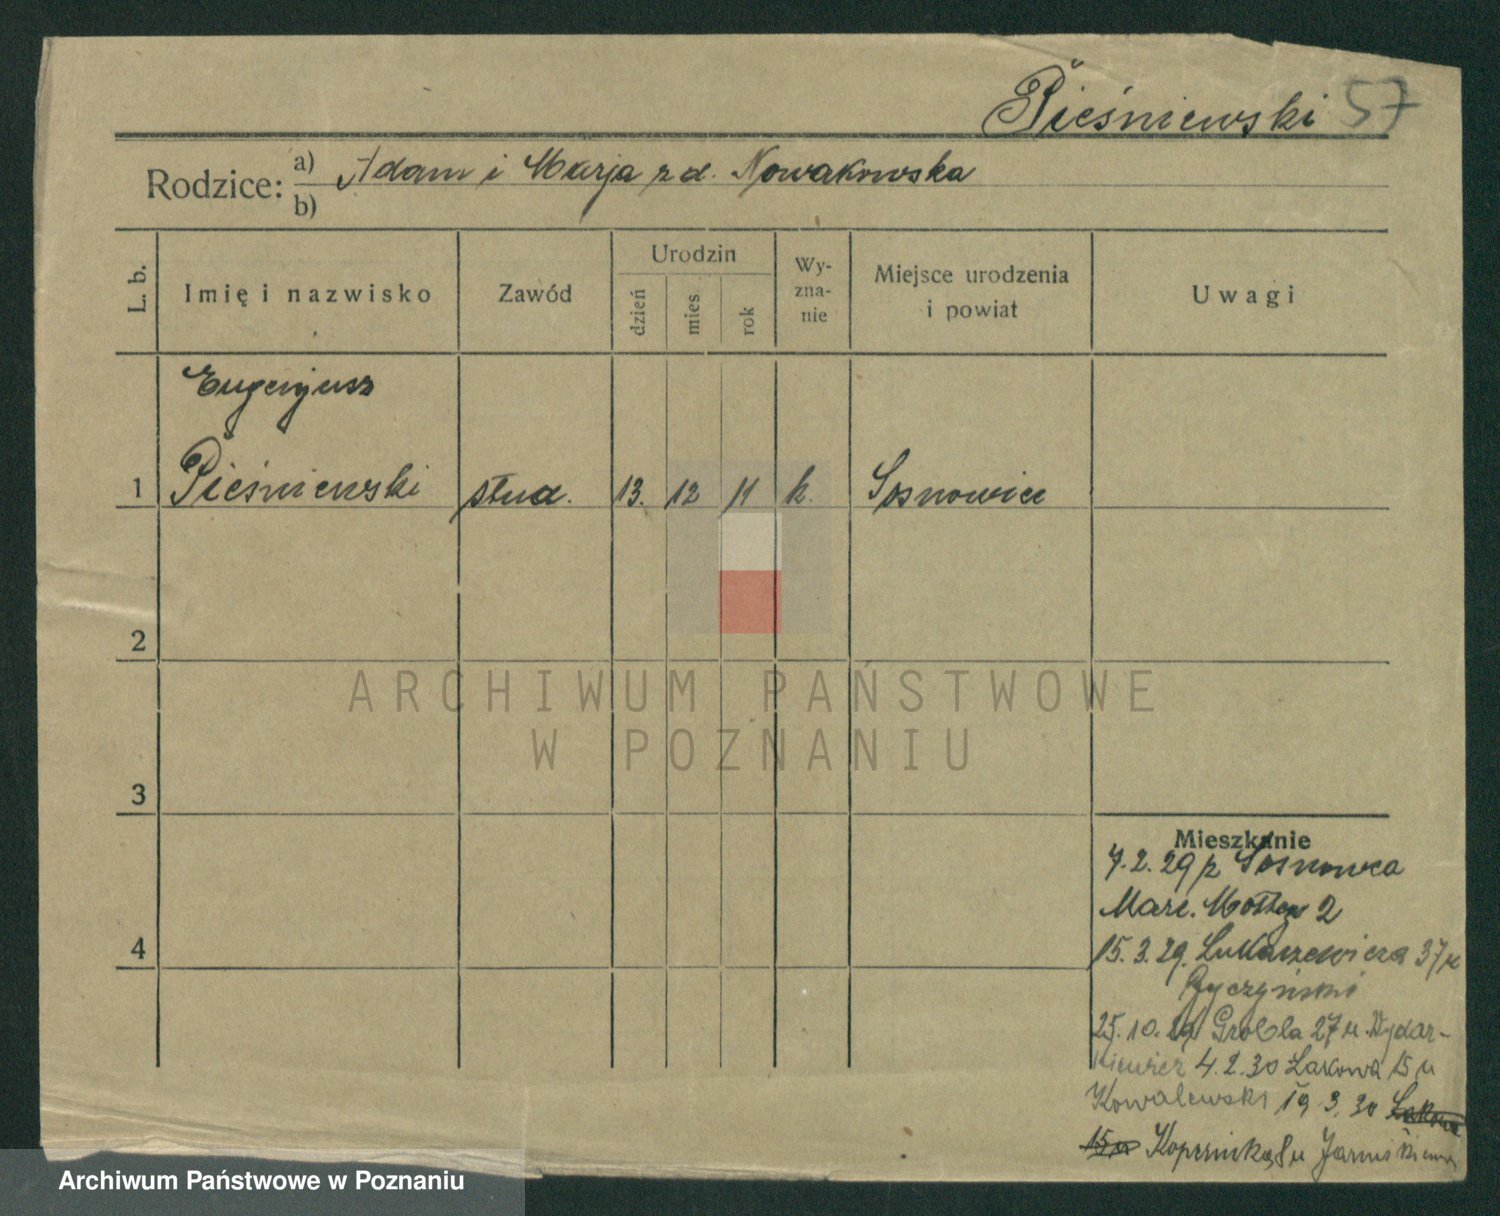 Pieśniewski 57
Rodzice: a) Adam i Marja z d. Nowakowska
b)
L. b.
Imię i nazwisko
Zawód
Urodzin
dzień
mies.
rok
Wy-
zna-
nie
Miejsce urodzenia
i powiat
Uwagi
Eugenjusz
1 Pieśniewski stud. 13. 12 11 k. Sosnowice
2
3
4
ARCHIWUM PAŃSTWOWE
W POZNANIU
Mieszkanie
7.2.29 z Sosnowca
Marc. 2
15.3.29. Łukaszewicza 37 u
25.10.29 Grobla 27 u. Wydar-
kiewicz 4.2.30 Łąkowa 15 u
Kowalewski 19.3.30 Łąkowa
15 u Kopernika 8 u
Archiwum Państwowe w Poznaniu